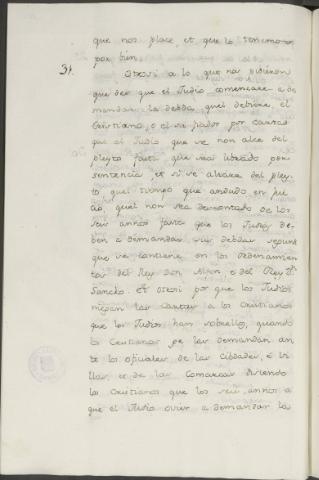 que nos place, et que lo tenemos
por bien.
31. Otrosi a lo que nos pidieron
que des que el Judio comenzare a de
mandar la debda, quel debiere, el
Christiano, o el su fiador por cartas
que el Judio que se non alce del
pleyto fasta que sea librado por
sentencia, et si se alzare del pley-
to quel tiempo que andudo en jui
cio, quel non sea descontado de los
seis annos fasta que los Judios de-
ben a demandar sus debdas segunt
que se contiene en los ordenamien
tos del Rey Don Alfon. e del Rey Dn.
Sancho. et otrosi por que los Judios
niegan las cartas a los Christianos
que los Judios han sobrellos, quando
los Christianos ge las demandan an
te los oficiales de las Cibdades, e Vi
llas, et de las Comarcas diciendo
los Christianos que los seis annos a
que el Judio ovier a demandar la